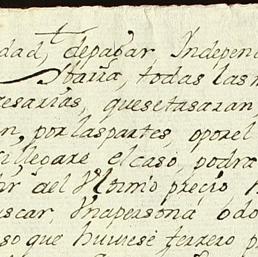 dad, de pagar Independ
Sbaria, todas las n
esarias, que se tasaran
n, por las partes o por el
si llegare el caso, podra
ar del Vltimo precio h
uscar, Vna persona o do
so que huviese terzero p